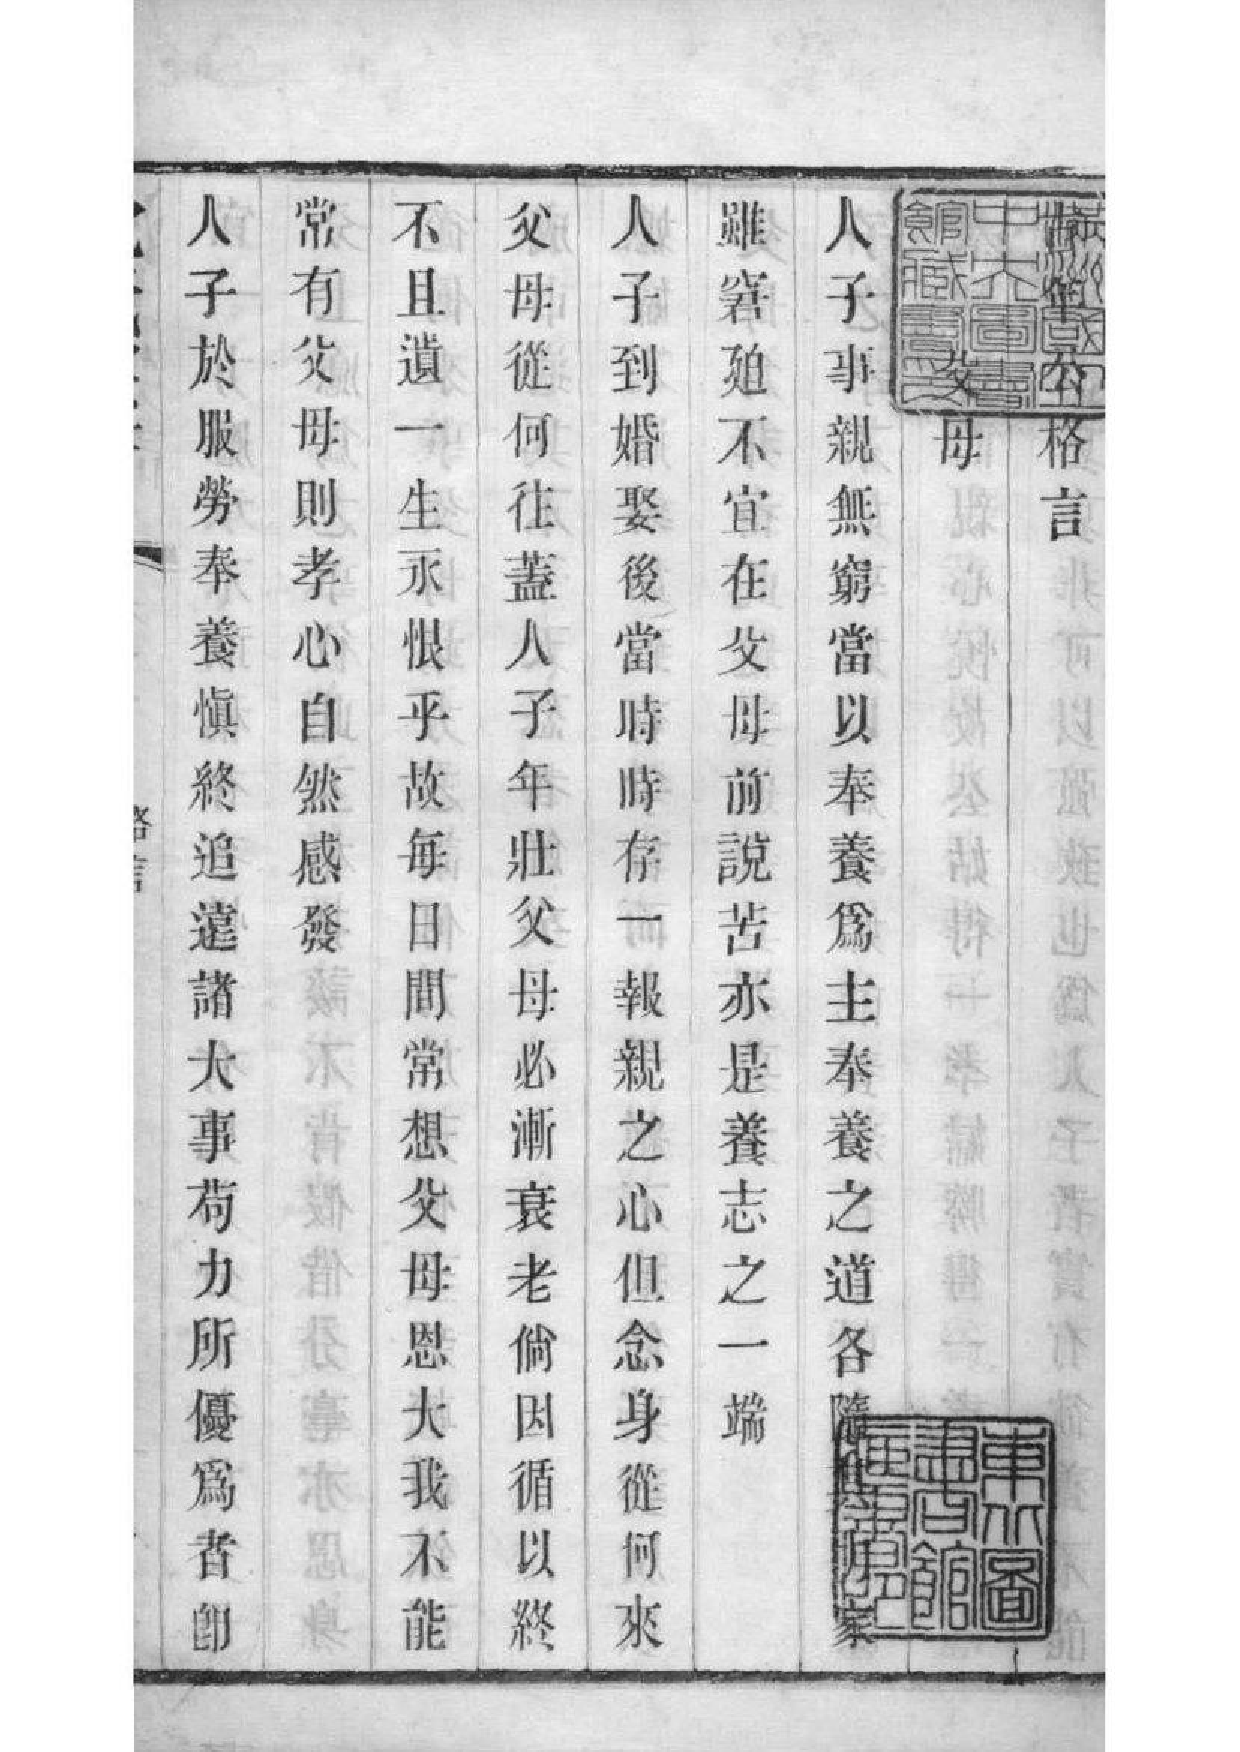 公格言
父母
人子事親無窮當以奉養爲主奉養之道各隨其家
雖窘廹不宜在父母前說苦亦是養志之一端
人子到婚娶後當時時存一報親之心但念身從何來
父母從何往蓋人子年壯父母必漸衰老倘因循以終
不且遺一生永恨乎故每日間常想父母恩大我不能
常有父母則孝心自然感發
人子於服勞奉養愼終追遠諸大事苟力所優爲者卽
格言
中央圖書
館藏書印
東北圖
書館